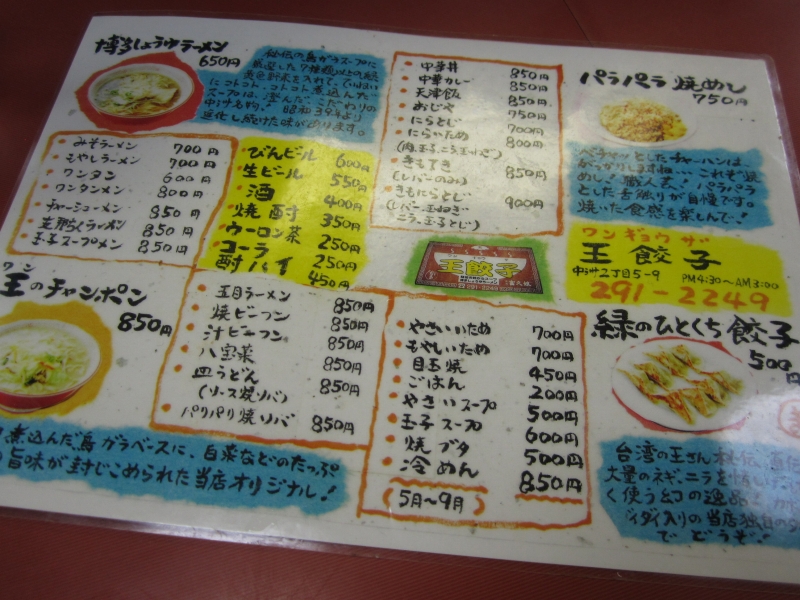 博多しょうゆラーメン
650円
秘伝の鳥ガラスープに
厳選した7種類以上の緑
黄色野菜を入れて
にコトコト、コトコト煮込んだ
スープは、澄んだこだわりの
中汁そば。昭和39年より
進化し続けた味があります。
みそラーメン 700円
もやしラーメン 700円
ワンタン 600円
ワンタンメン 800円
チャーシューメン 850円
支那ちくラーメン 850円
玉子スープメン 850円
びんビール 600円
生ビール 550円
酒 400円
焼酎 350円
ウーロン茶 250円
コーラ 250円
酎ハイ 450円
中華丼 850円
中華カレー 850円
天津飯 850円
おじや 750円
にらとじ 700円
にらいため 800円
(肉、玉子、ニラ、玉ねぎ)
きもてき 850円
(レバーのみ)
きもにらとじ 900円
(レバー、玉ねぎ
ニラ、玉とじ)
パラパラ焼めし
750円
ベチャッとしたチャーハンは
がっかりしますね…これぞ焼
めし!職人芸。パラパラ
とした舌触りが自慢です。
焼いた食感を楽しんで!
ワンギョウザ
王餃子
中洲2丁目5-9 PM4:30~AM3:00
291-2249
王餃子
291-2249
ワン
王のチャンポン
850円
煮込んだ鳥ガラベースに、白菜などのたっぷ
の旨味が封じこめられた当店オリジナル!
五目ラーメン 850円
焼ビーフン 850円
汁ビーフン 850円
八宝菜 850円
皿うどん 850円
(ソース焼リバ)
パリパリ焼リバ 850円
やさいいため 700円
もやしいため 700円
目玉焼 450円
ごはん 200円
やさいスープ 500円
玉子スープ 600円
焼ブタ 500円
冷めん 850円
(5月~9月)
緑のひとくち餃子
500円
台湾の王さん秘伝、直伝
大量のネギ、ニラを惜し
く使う幻の逸品
イダイ入りの当店独自のタ
でどうぞ!